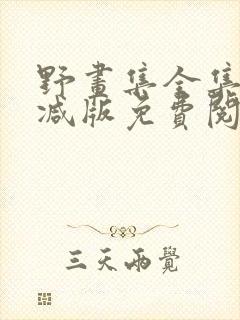 野畫集全集
減版免費閱
三天兩覺